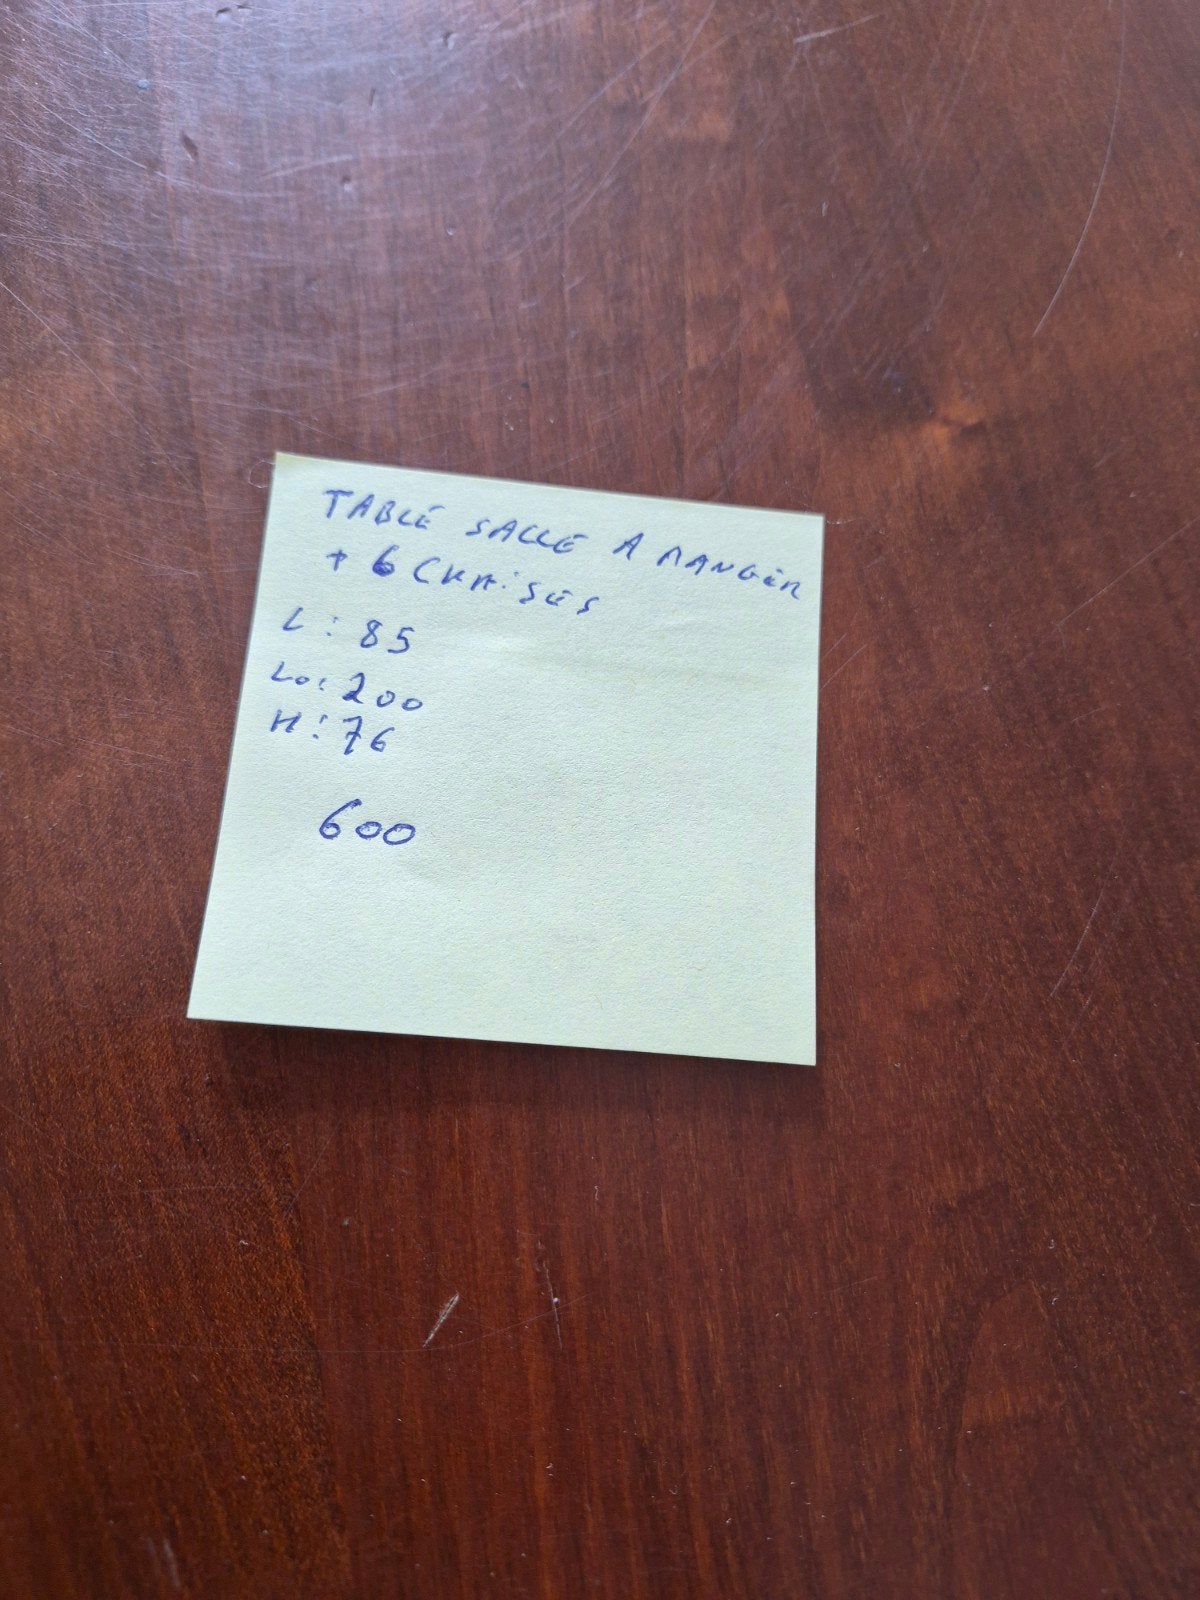 TABLE SALLE A MANGER
+ 6 CHAISES
L : 85
Lo : 200
H : 76
600